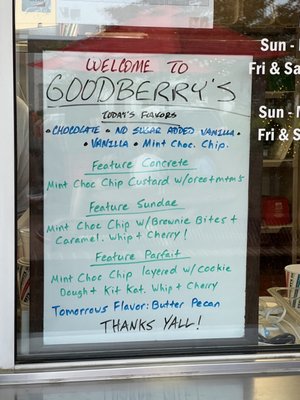 WELCOME TO
GOODBERRY'S
TODAY'S FLAVORS
• CHOCOLATE • NO SUGAR ADDED VANILLA •
• VANILLA • Mint Choc. Chip.
Feature Concrete
Mint Choc Chip Custard w/oreo+m+m's
Feature Sundae
Mint Choc Chip w/Brownie Bites +
Caramel. Whip + Cherry!
Feature Parfait
Mint Choc Chip layered w/cookie
Dough + Kit Kat. Whip + Cherry
Tomorrows Flavor: Butter Pecan
THANKS YALL!
Sun -
Fri & Sa
Sun -
Fri & S